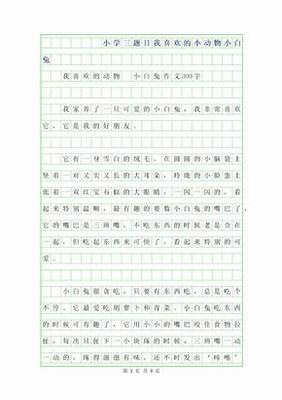 小学三题目我喜欢的小动物小白
兔
我喜欢的动物 小白兔作文300字
我家养了一只可爱的小白兔，我非常喜欢
它，它是我的好朋友。
它有一身雪白的绒毛。在圆圆的小脑袋上
竖着一对又尖又长的大耳朵，玲珑的小脸蛋上
张着一双红宝石似的大眼睛，一闪一闪的。看
起来特别温顺。最有趣的要数小白兔的嘴巴了，
它的嘴巴是三辨嘴。不吃东西的时候老是合在
一起，但吃起东西来可快了，看起来特别的可
爱。
小白兔很贪吃。只要有东西吃，总是吃个
不停。它最爱吃胡萝卜和青菜。小白兔吃东西
的时候可有趣了，它用小小的嘴巴咬住食物拉
扯，每次只扯下一小块琢的时候，三辨嘴一动
一动的，琢得滋滋有味，还不时发出‘咔嚓’
第 1 页 共 9 页